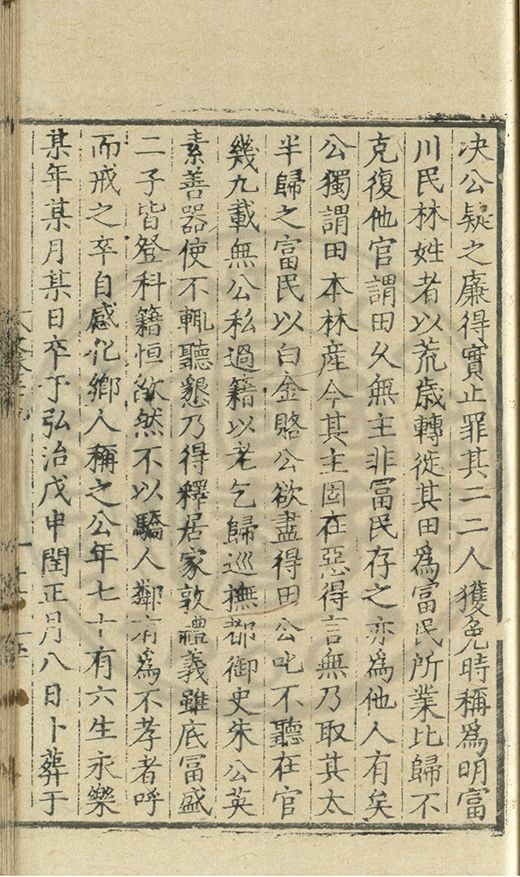 决公疑之廉得實止罪其一二人獲免時稱爲明富
川民林姓者以荒歲轉徙其田爲富民所業比歸不
克復他官謂田久無主非冨民存之亦爲他人有矣
公獨謂田本林産今其主固在惡得言無乃取其太
半歸之富民以白金賂公欲盡得田公叱不聽在官
幾九載無公私過籍以老乞歸巡撫都御史朱公英
素善器使不輒聽懇乃得釋居家敦禮義雖底冨盛
二子皆登科籍恒欿然不以驕人鄰有爲不孝者呼
而戒之卒自感化鄉人稱之公年七十有六生永樂
某年某月某日卒于弘治戊申閏正月八日卜葬于